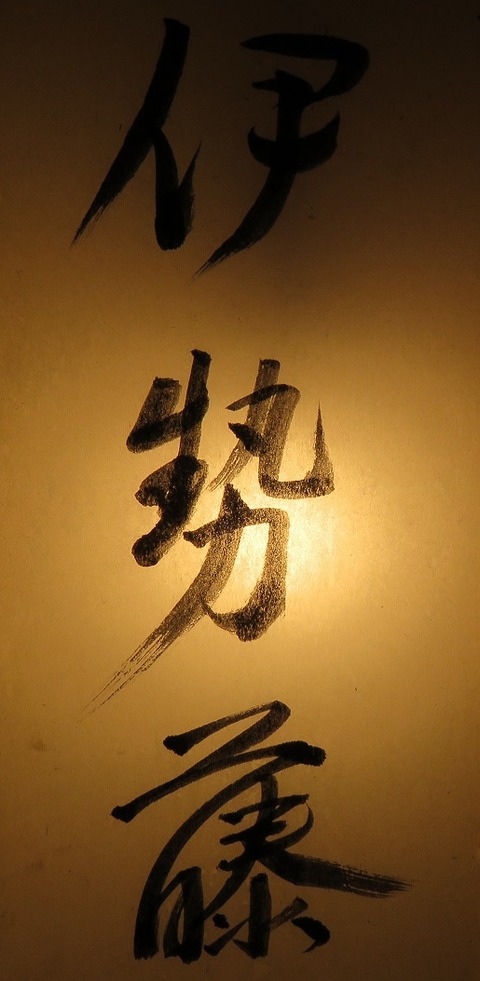 伊勢藤